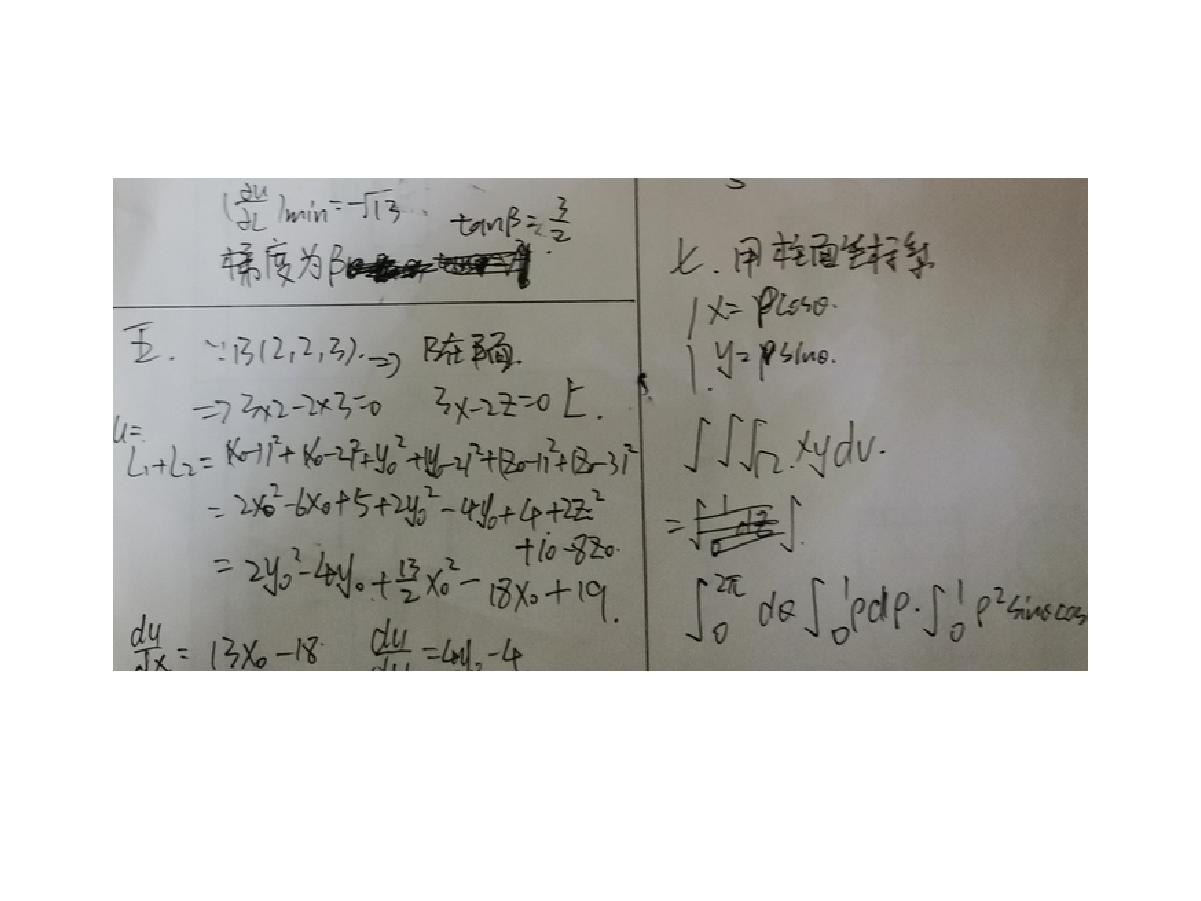 (∂u/∂L)min=-√13
tanβ=3/2
梯度为β
五. ∵B(2,2,3).⇒ B在平面.
⇒3×2-2×3=0 3x-2z=0上.
u=
L₁+L₂=(x₀-1)²+(x₀-2)²+y₀²+(y₀-2)²+(z₀-1)²+(z₀-3)²
=2x₀²-6x₀+5+2y₀²-4y₀+4+2z²
+10-8z₀.
=2y₀²-4y₀+13/2x₀²-18x₀+19.
du/dx=13x₀-18 du/dy=4y₀-4
七.用柱面坐标系
x=ρcosθ.
y=ρsinθ.
∫∫∫Ω xydv.
=∫
∫₀^2π dθ∫₀^1 ρdρ·∫₀^1 ρ²sinθcos